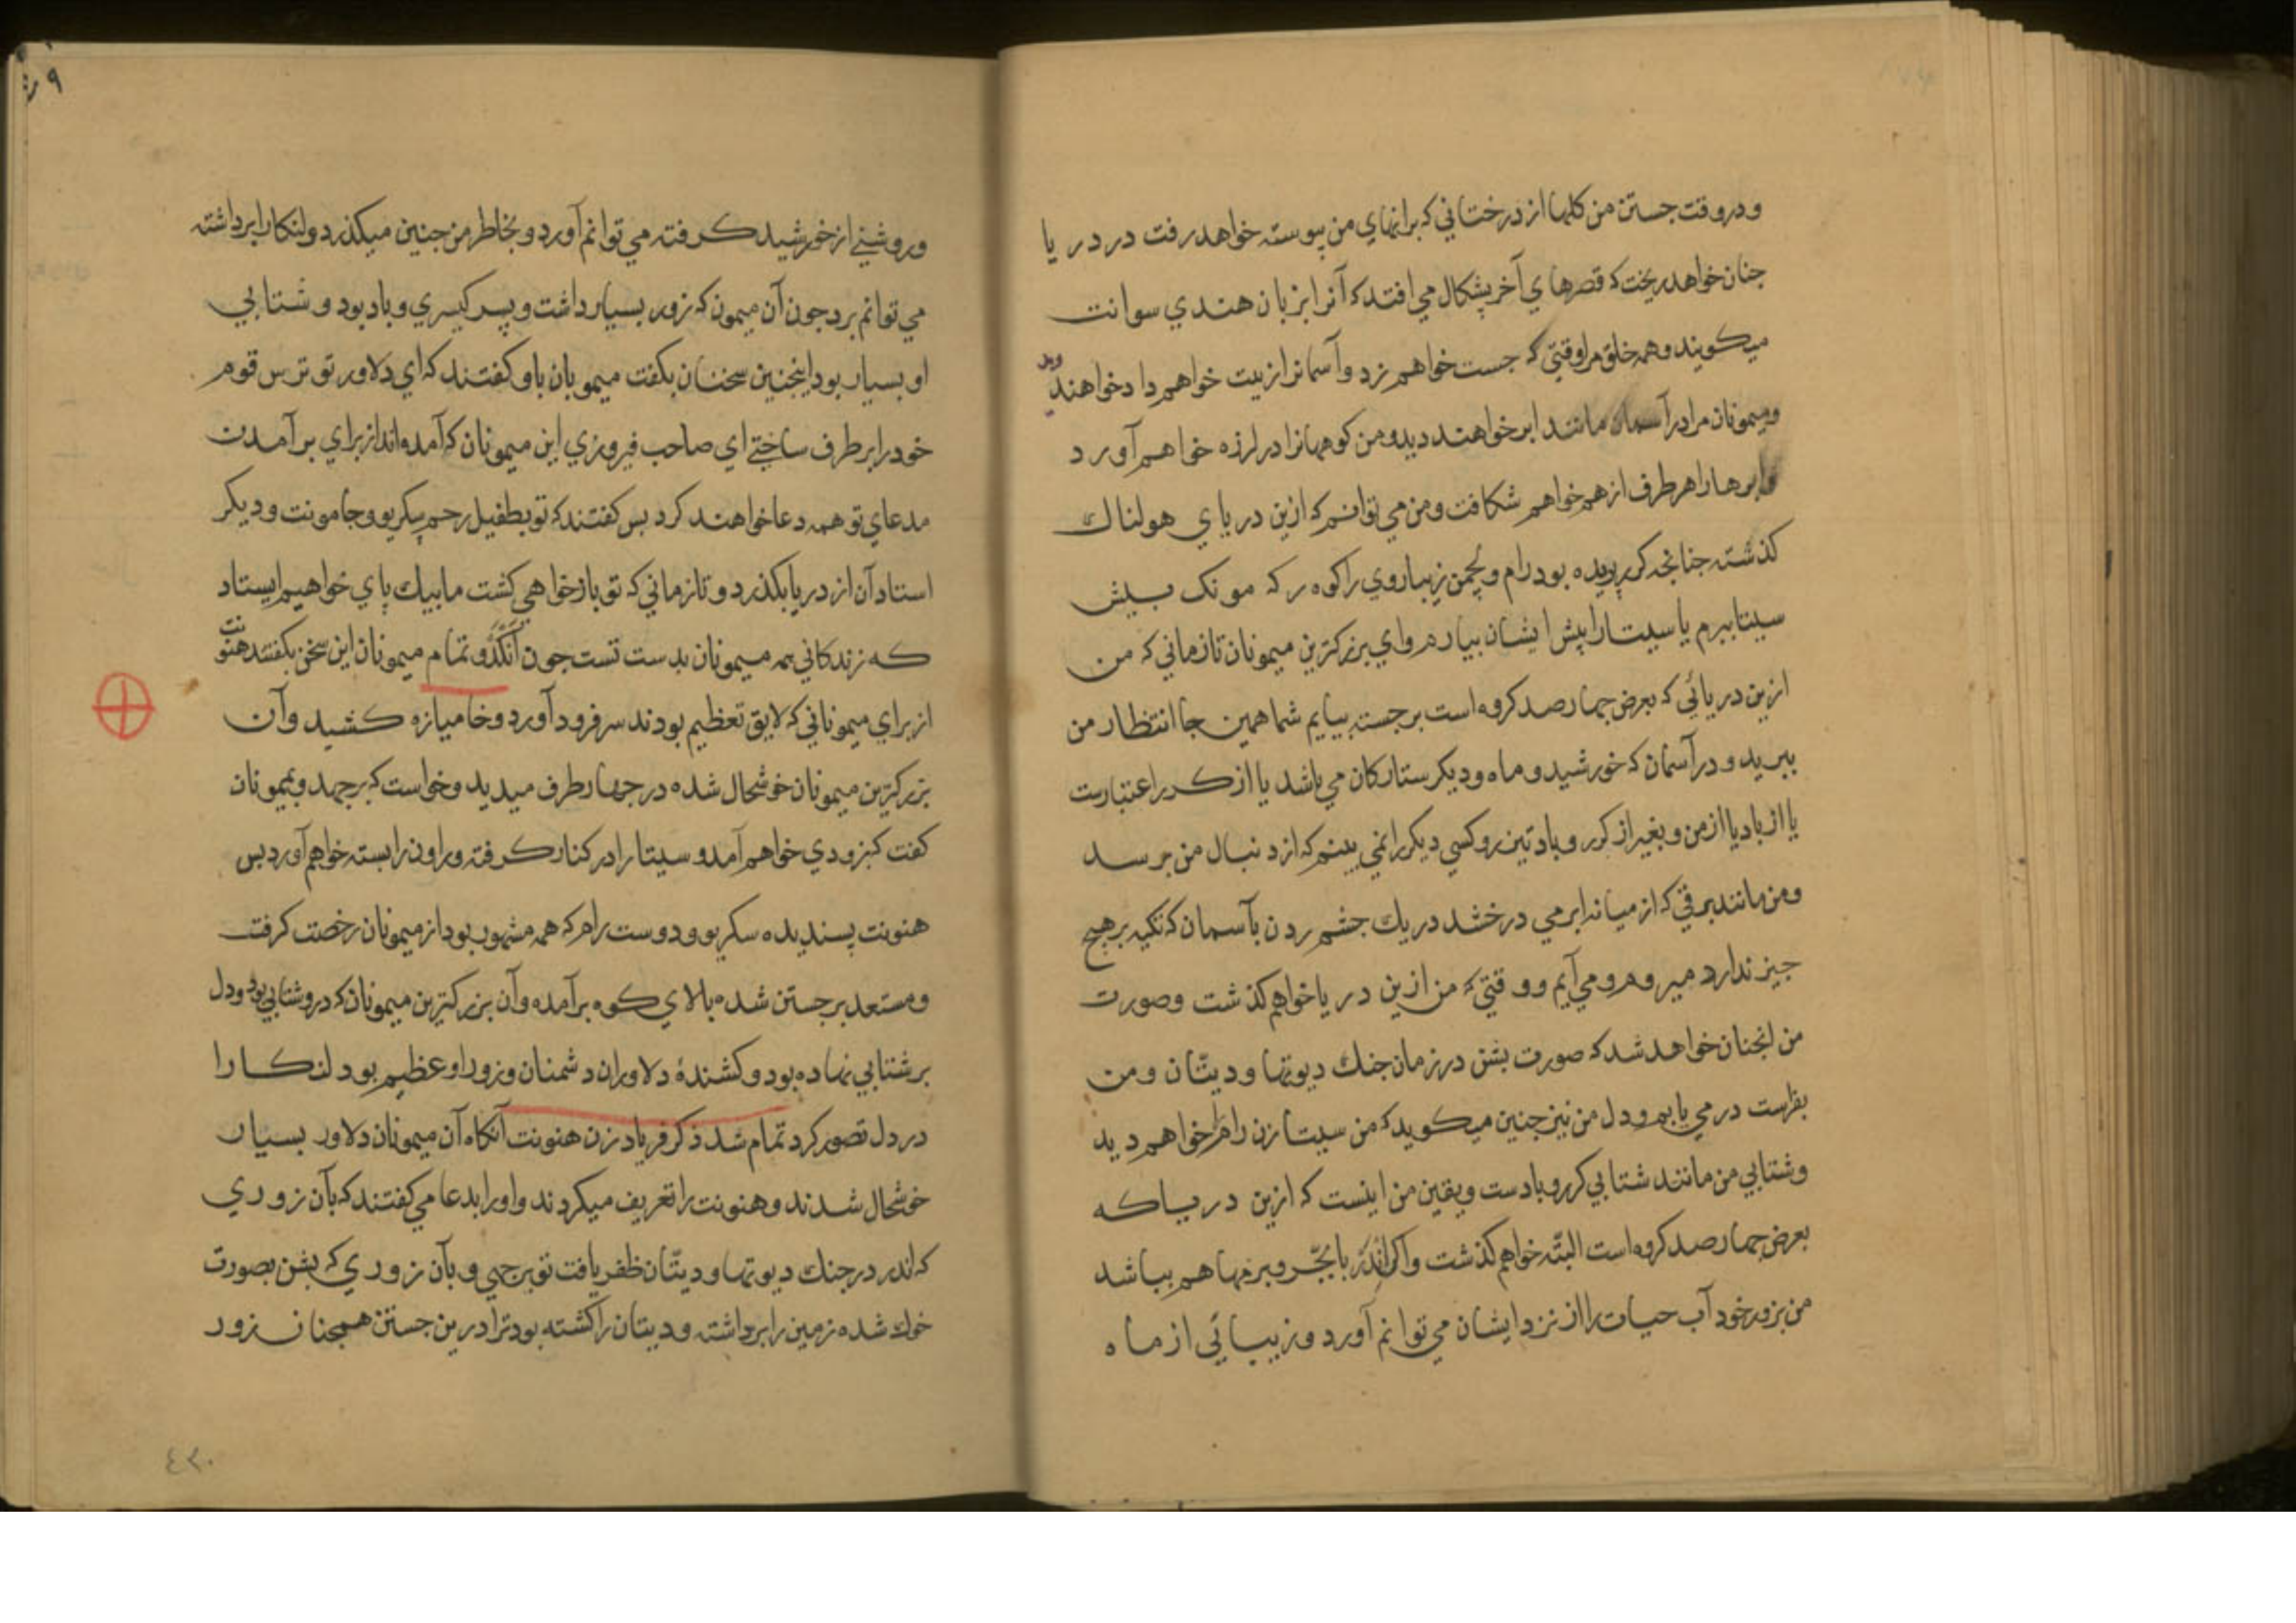 ودر وقت جستن من کلها از درختاني که برانهاي من پیوسته خواهد رفت در دریا
جنان خواهد ریخت که قصرهاي آخر پشکال مي افتد که آنرا بزبان هندي سوانت
میکویند و همه خلق مرا وقتي که جست خواهم زد وآسمانرا زیب خواهم داد خواهند دید
ومیمونان مرا در آسمان مانند ابر خواهند دید و من کوههانرا در لرزه خواهم آورد
وابرها را هر طرف از هم خواهم شکافت ومن مي توانم که ازین دریاي هولناك
کذشته جنانجه کرر پریده بود رام ولچمن زیباروي را کوه رکه مونک بیش
سیتا ببرم یا سیتا را پیش ایشان بیارم واي بزرکترین میمونان تا زماني که من
ازین دریائي که بعرض جهارصد کروه است برجسته بیایم شما همین جا انتظار من
ببرید و در آسمان که خورشید و ماه ودیکر ستارکان مي باشد یا از کرر اعتبارست
یا از باد یا از من و بغیر از کرر و باد تیز رو کسي دیکر را نمي بینم که از دنبال من برسد
ومن مانند برقي که از میانه ابر مي درخشد در یك جشم زدن بآسمان که تکیه بر هیچ
جیز ندارد میروم و مي آیم و وقتي که من ازین دریا خواهم کذشت وصورت
من انجنان خواهد شد که صورت بشن در زمان جنك دیوتها ودیتّان ومن
بفراست در مي یابم ودل من نیز جنین میکوید که من سیتا زن رام را خواهم دید
وشتابي من مانند شتابي کرر وبادست ویقین من اینست که ازین دریا که
بعرض جهارصد کروه است البتّه خواهم کذشت واکر اندر با بجّر وبرمها هم بباشد
من بزور خود آب حیات را از نزد ایشان مي توانم آورد وزیبائي از ماه
وروشني از خورشید کرفته مي توانم آورد و بخاطر من جنین میکذرد و لنکا را برداشته
مي توانم برد جون آن میمون که زور بسیار داشت و پسر کیسري و باد بود و شتابي
او بسیار بود اینجنین سخنان بکفت میمونان باو کفتند که اي دلاور تو ترس قوم
خود را برطرف ساختي اي صاحب فیروزي این میمونان که آمده اند از براي برآمدن
مدعاي تو همه دعا خواهند کرد بس کفتند که تو بطفیل رحم سکریو وجامونت ودیکر
استادان از دریا بکذرد و تا زماني که تو باز خواهي کشت ما بیك پاي خواهیم ایستاد
که زندکاني همه میمونان بدست تست جون انکد و تمام میمونان این سخن بکفتند هنونت
از براي میموناني که لایق تعظیم بودند سر فرود آورد وخامیازه کشید وآن
بزرکترین میمونان خوشحال شده در جهار طرف میدید وخواست که برجهد وبمیمونان
کفت که بزودي خواهم آمد و سیتا را در کنار کرفته وراون را بسته خواهم آورد بس
هنونت پسندیده سکریو ودوست رام که همه مشهور بود از میمونان رخصت کرفت
ومستعد برجستن شده بالاي کوه برآمده وآن بزرکترین میمونان که در وشتابي بود ودل
بر شتابي نهاده بود وکشندهٔ دلاوران دشمنان وزور او عظیم بود لنکا را
در دل تصور کرد تمام شد ذکر فریاد زدن هنونت آنکاه آن میمونان دلاور بسیار
خوشحال شدند وهنونت را تعریف میکردند و او را بدعا مي کفتند که بآن زوري
که اندر در جنك دیوتها ودیتّان ظفر یافت تو برجهي و بآن زوري که بشن بصورت
خوك شده زمین را برداشته ودیتان را کشته بود ترا درین جستن همجنان زور
٤٢٠